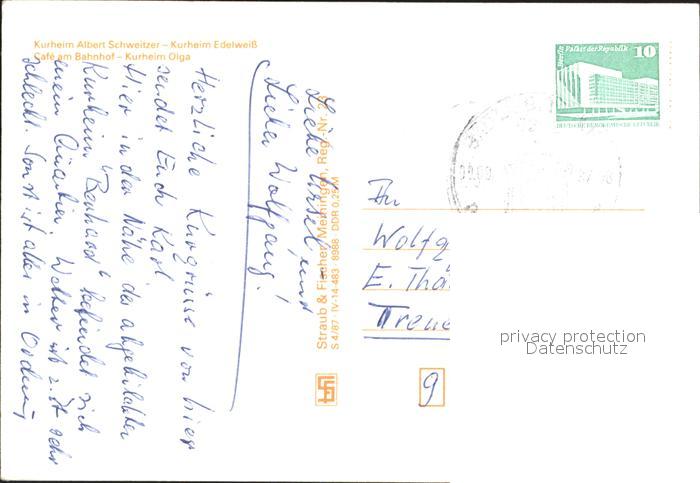 Kurheim Albert Schweitzer – Kurheim Edelweiß
Café am Bahnhof – Kurheim Olga
Liebe Ursel, und
Lieber Wolfgang!
Herzliche Kurgrüsse von hier
sendet Euch Karl
Hier in der Nähe des abgebildeten
Kurheim "Bernhard" befindet sich
mein Quartier. Wetter ist z. Zt. sehr
schlecht. Sonst ist alles in Ordnung
Straub & Fischer Meiningen, Reg.-Nr.
S 4/87 IV-14-483 8988 DDR 0,25 M
Berlin Palast der Republik
10
DEUTSCHE DEMOKRATISCHE REPUBLIK
An
Wolfg
E. Thä
Treue
9
privacy protection
Datenschutz